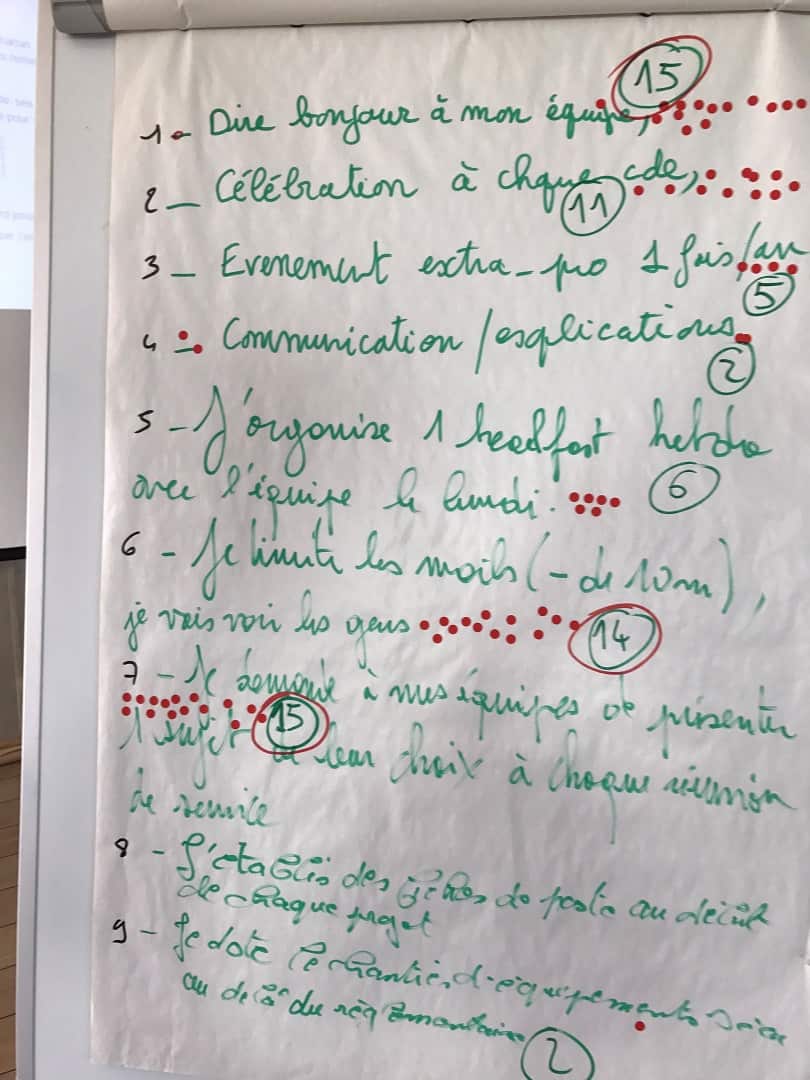 15
1 - Dire bonjour à mon équipe,
2 - Célébration à chque cde,
11
3 - Evenement extra-pro 1 fois/an
5
4 - Communication/explications
2
5 - J'organise 1 breakfast hebdo
avec l'équipe le lundi. 6
6 - Je limite les mails (- de 10m),
je vais voir les gens 14
7 - Je demande à mes équipes de présenter
1 sujet de leur choix à chaque réunion 15
de service
8 - J'établis des fiches de poste au début
de chaque projet
9 - Je dote le chantier d'équipements
au delà du réglementaire
2